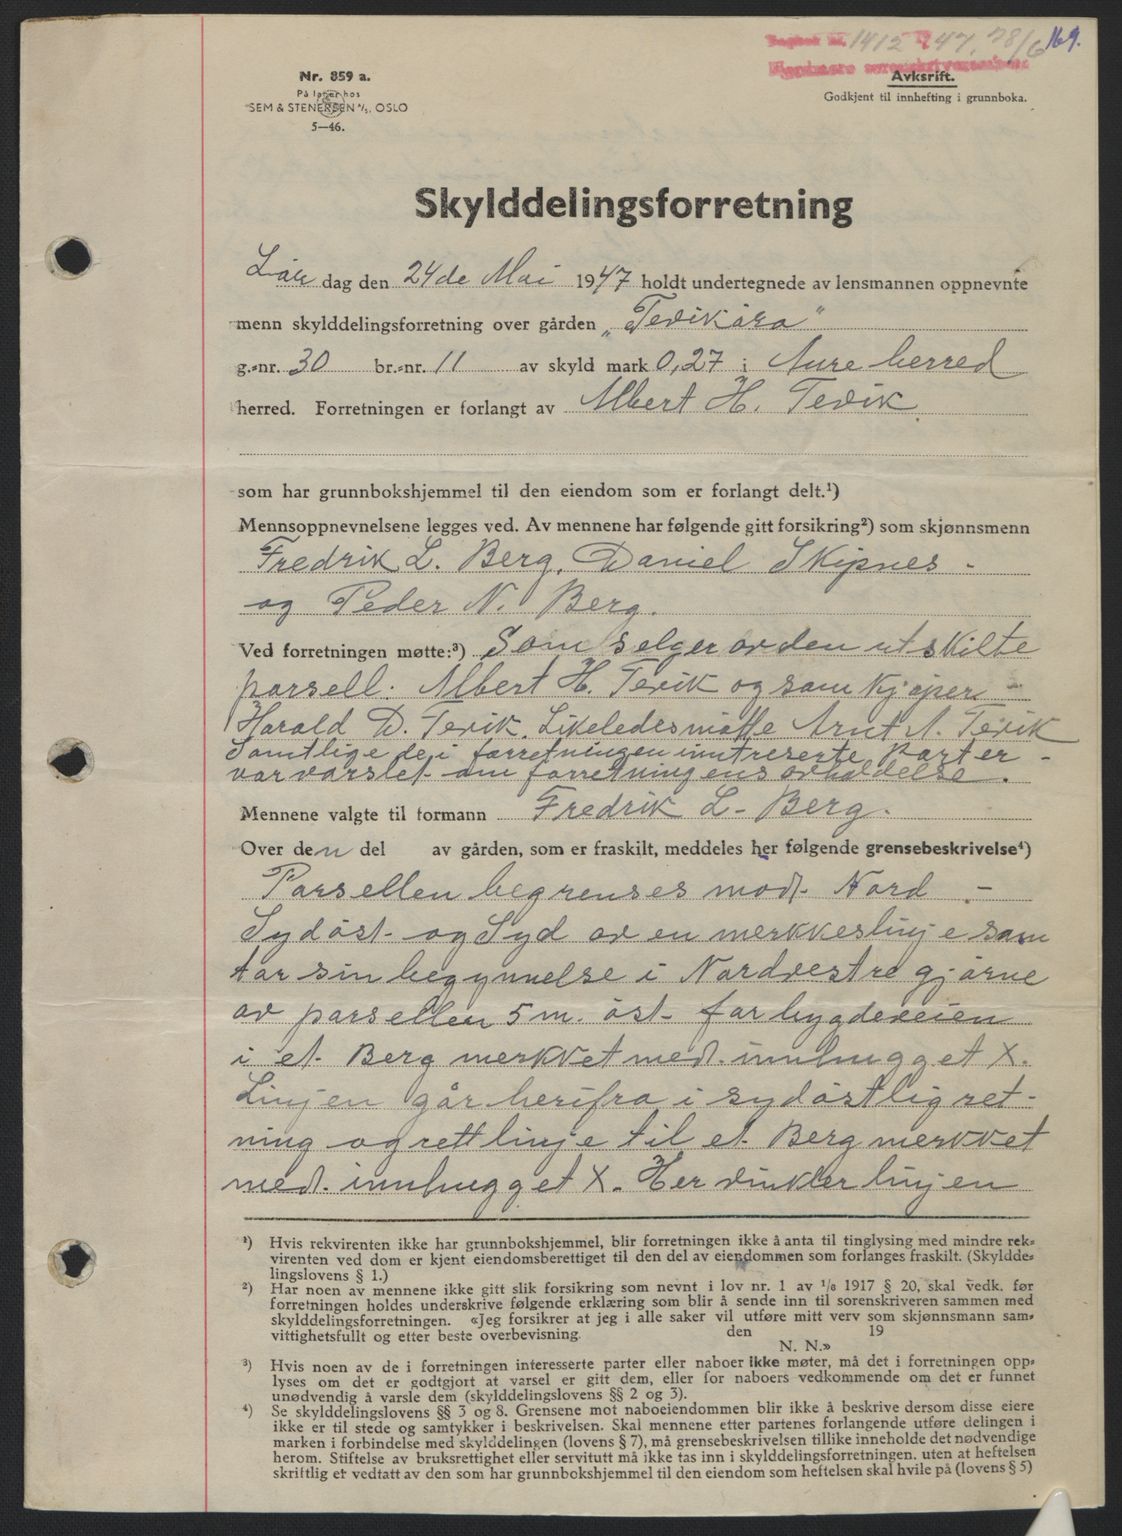 Dagbok nr. 1412 1947, 28/6 169.
Nordmøre sorenskriverembete
Nr. 859 a.
På lager hos
SEM & STENERSEN A/S. OSLO
5—46.
Avkskrift.
Godkjent til innhefting i grunnboka.
Skylddelingsforretning
Lör dag den 24de Mai 1947 holdt undertegnede av lensmannen oppnevnte
menn skylddelingsforretning over gården „Tevikåra“
g.-nr. 30 br.-nr. 11 av skyld mark 0,27 i Aure herred
herred. Forretningen er forlangt av Albert H. Tevik
som har grunnbokshjemmel til den eiendom som er forlangt delt.¹)
Mennsoppnevnelsene legges ved. Av mennene har følgende gitt forsikring²) som skjønnsmenn
Fredrik L. Berg, Daniel Skipnes -
og Peder N. Berg.
Ved forretningen møtte:³) Som selger av den utskilte
parsell: Albert H. Tevik og som kjöper -
Harald D. Tevik. Likeledes møtte Arnt A. Tevik
Samtlige de i forretningen inntreserte parter -
var varslet om forretningens avholdelse.
Mennene valgte til formann Fredrik L. Berg.
Over den del av gården, som er fraskilt, meddeles her følgende grensebeskrivelse⁴)
Parsellen begrenses mot Nord -
Sydöst og Syd av en merkkeslinje som
tar sin begynnelse i Nordvestre gjörne
av parsellen 5 m. öst for bygdeveien
i et Berg merkket med innhugget X.
Linjen går herifra i sydöstlig ret-
ning og rett linje til et Berg merkket
med innhugget X. Her vinkler linjen
¹) Hvis rekvirenten ikke har grunnbokshjemmel, blir forretningen ikke å anta til tinglysing med mindre rek-
virenten ved dom er kjent eiendomsberettiget til den del av eiendommen som forlanges fraskilt. (Skyldde-
lingslovens § 1.)
²) Har noen av mennene ikke gitt slik forsikring som nevnt i lov nr. 1 av 1/6 1917 § 20, skal vedk. før
forretningen holdes underskrive følgende erklæring som blir å sende inn til sorenskriveren sammen med
skylddelingsforretningen. «Jeg forsikrer at jeg i alle saker vil utføre mitt verv som skjønnsmann sam-
vittighetsfullt og etter beste overbevisning. den 19
N. N.»
³) Hvis noen av de i forretningen interesserte parter eller naboer ikke møter, må det i forretningen opp-
lyses om det er godtgjort at varsel er gitt dem, eller for naboers vedkommende om det er funnet
unødvendig å varsle dem (skylddelingslovens §§ 2 og 3).
⁴) Se skylddelingslovens §§ 3 og 8. Grensene mot naboeiendommen blir ikke å beskrive dersom disse eiere
ikke er til stede og samtykker i beskrivelsen. Skal mennene etter partenes forlangende utføre delingen i
marken i forbindelse med skylddelingen (lovens § 7), må grensebeskrivelsen tillike inneholde det nødvendige
herom. Stiftelse av bruksrettighet eller servitutt må ikke tas inn i skylddelingsforretningen, uten at heftelsen
skriftlig er vedtatt av den som har grunnbokshjemmel til den eiendom som heftelsen skal hvile på (lovens § 5)